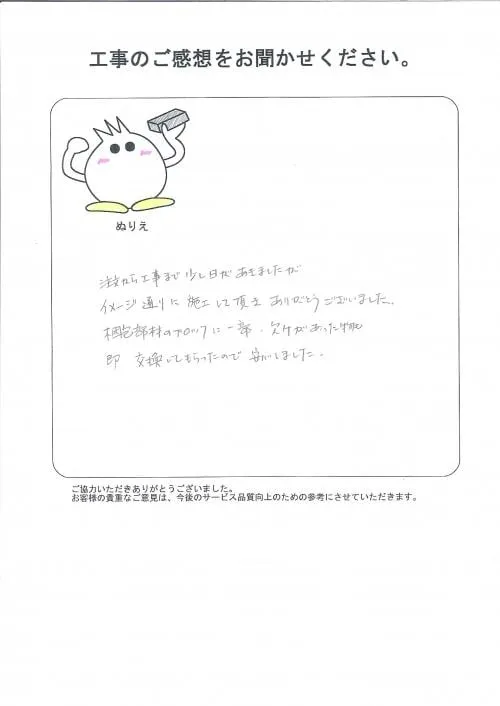 工事のご感想をお聞かせください。
ぬりえ
注文から工事まで少し日があきましたが
イメージ通りに施工して頂き ありがとうございました。
梱包部材のブロックに一部、欠けがあった物
即 交換してもらったので 安心しました。
ご協力いただきありがとうございました。
お客様の貴重なご意見は、今後のサービス品質向上のための参考にさせていただきます。